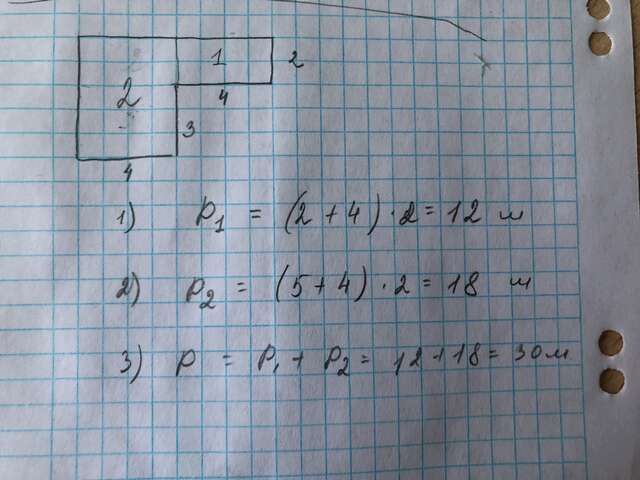 2
1
4
3
4
2
1) P₁ = (2+4)·2=12 м
2) P₂ = (5+4)·2=18 м
3) P = P₁ + P₂ = 12+18=30м